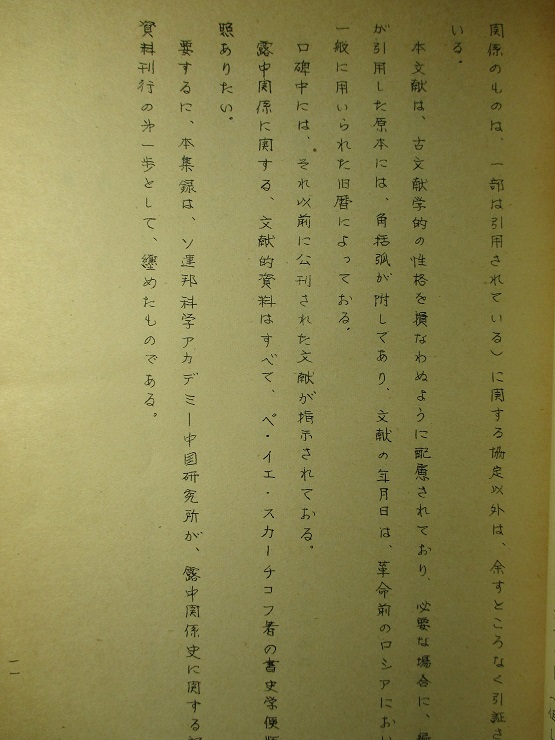 関係のものは、一部は引用されている）に関する協定以外は、余すところなく引証さ
いる。
本文献は、古文献学的の性格を損なわぬように配慮されており、必要な場合に、
が引用した原本には、角括弧が附してあり、文献の年月日は、革命前のロシアにおい
一般に用いられた旧暦によっておる。
口碑中には、それ以前に公刊された文献が指示されておる。
露中関係に関する、文献的資料はすべて、ペ・イエ・スカーチコフ著の書史学便
照ありたい。
要するに、本集録は、ソ連邦科学アカデミー中国研究所が、露中関係史に関する
資料刊行の第一歩として、纏めたものである。
一一